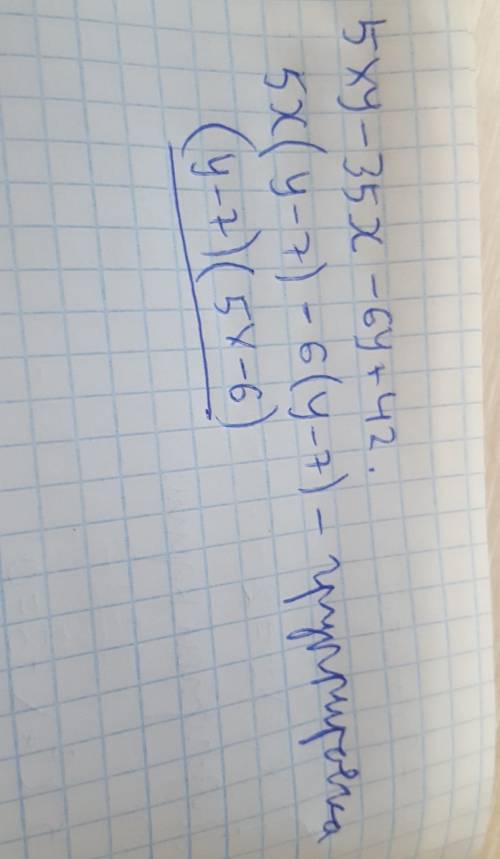 5xy - 35x - 6y + 42.
5x(y-7) - 6(y-7) - группировка
(y-7)(5x-6)